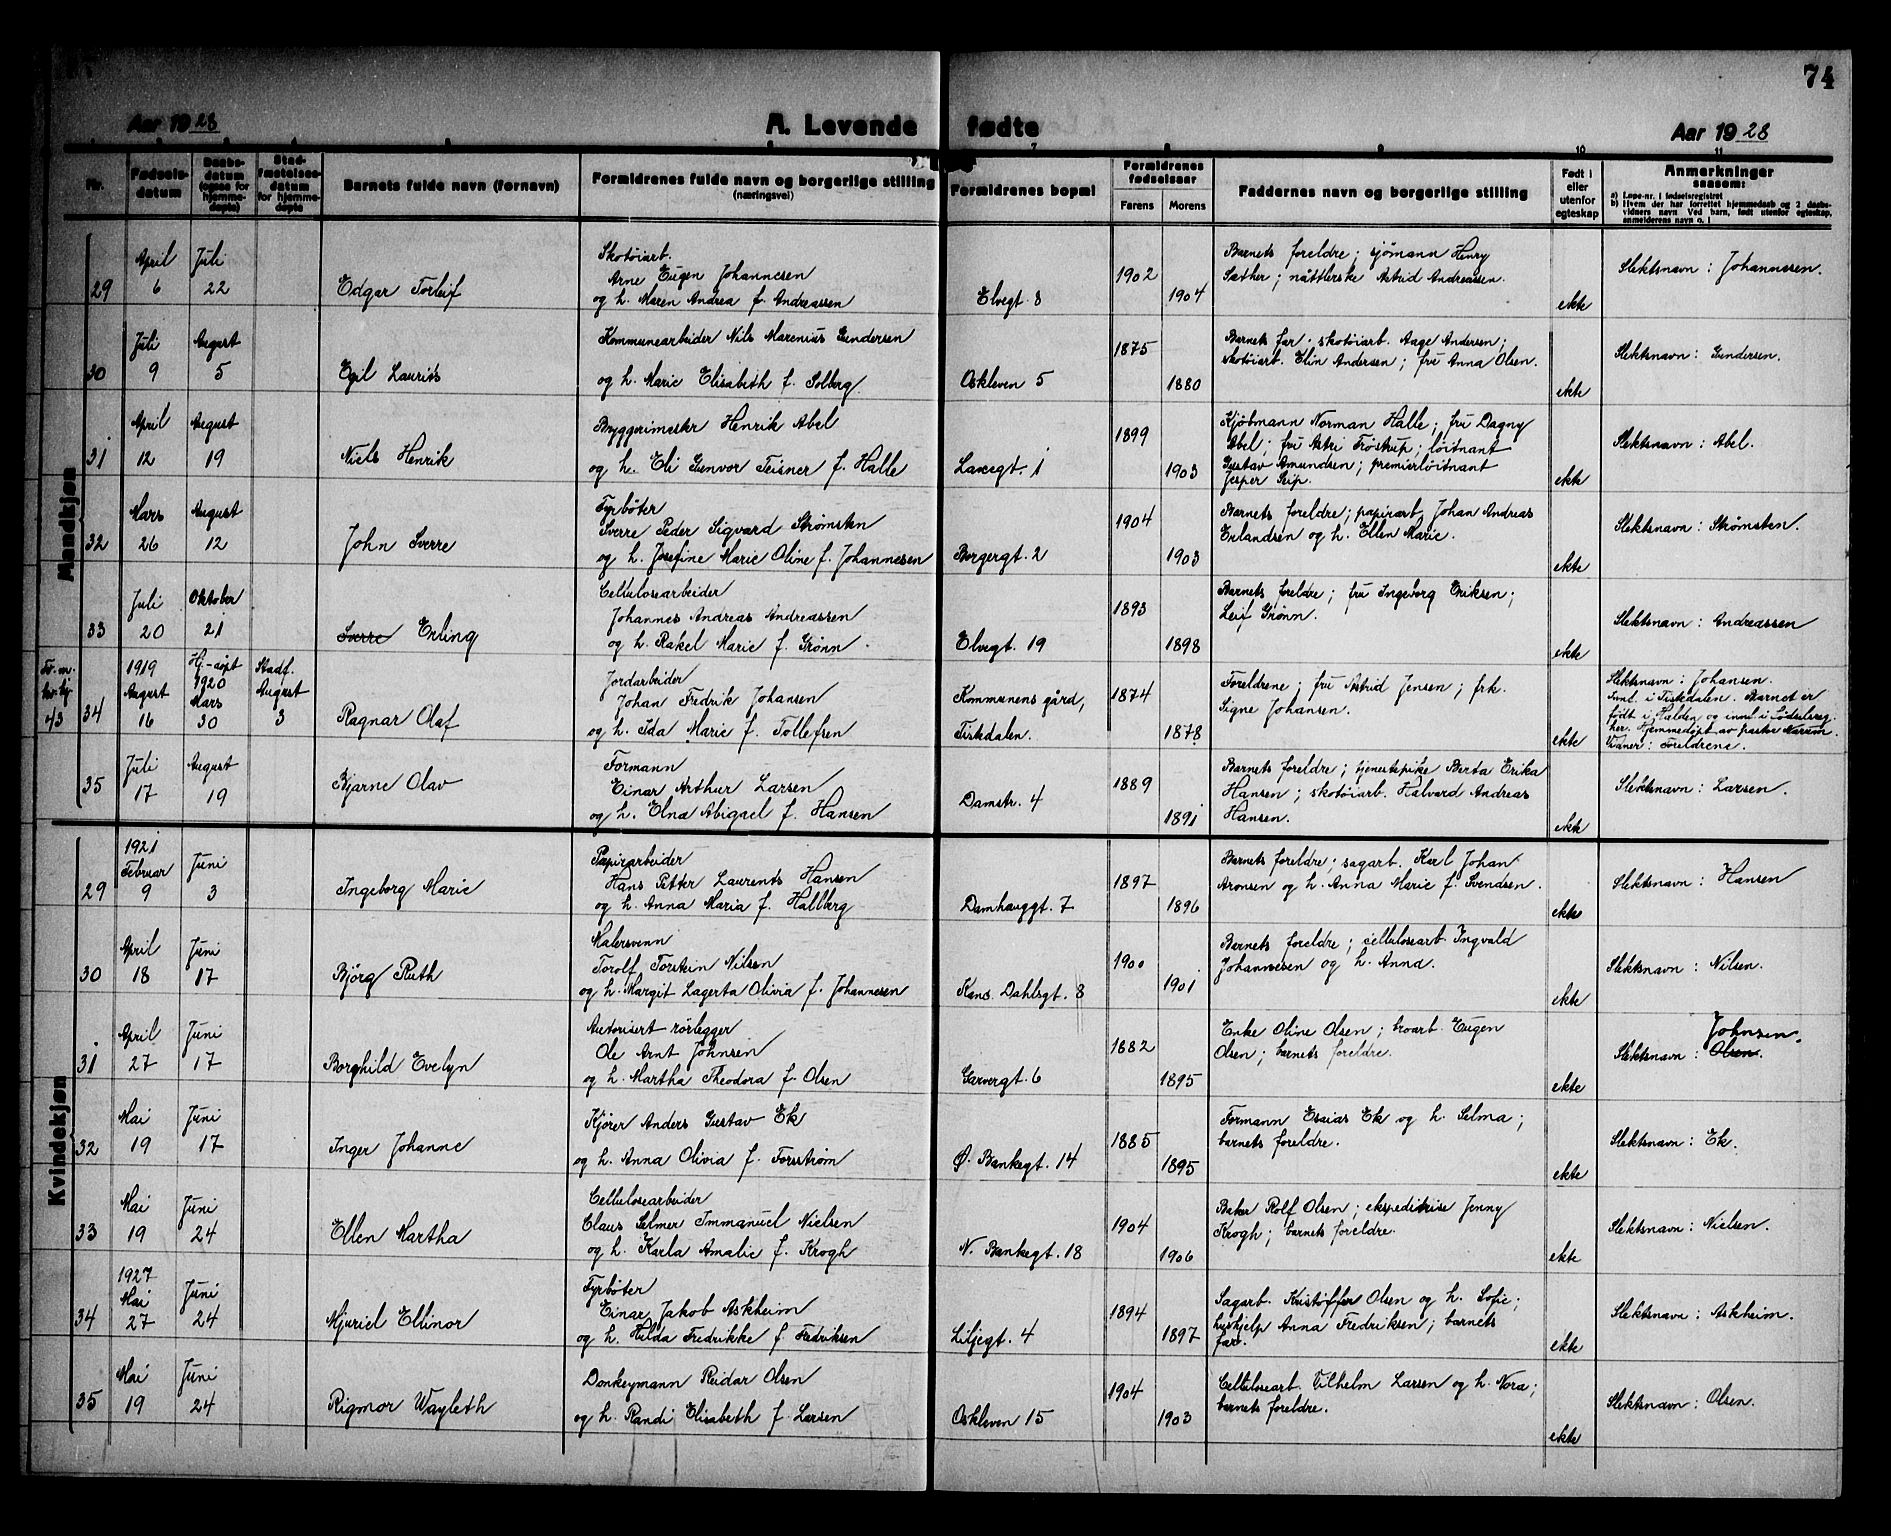 74
Aar 1928
A. Levende fødte
Aar 1928
7 8 9 10 11
Nr.
Fødsels-
datum
Daabs-
datum
(ogsaa for
hjemme-
døpte)
Stad-
fæstelses-
datum
for hjemme-
døpte
Barnets fulde navn (fornavn)
Formldrenes fulde navn og borgerlige stilling
(næringsvei)
Formldrenes bopæl
Formldrenes
fødselsaar
Farens Morens
Faddernes navn og borgerlige stilling
Født i
eller
utenfor
egteskap
Anmerkninger
saasom:
a) Løpe-nr. i fødselsregistret
b) Hvem der har forrettet hjemmedaab og 2 daabs-
vidners navn. Ved barn, født utenfor egteskap,
anmelderens navn o. l
Mandkjøn
29 April 6 Juli 22 Edgar Torleif
Skotøiarb.
Arne Eugen Johannesen
og h. Maren Andrea f. Andreassen
Elvegt. 8 1902 1904
Barnets foreldre; sjømann Henry
Sæther; nåtterske Astrid Andreassen.
ekte Slektsnavn: Johannesen.
30 Juli 9 August 5 Egil Laurits
Kommunearbeider Nils Marenius Gundersen
og h. Marie Elisabeth f. Solberg.
Oskleven 5 1875 1880
Barnets far. skotøiarb. Aage Andersen;
skotøiarb. Elin Andersen; fru Anna Olsen.
ekte Slektsnavn: Gundersen.
31 April 12 August 19 Niels Henrik
Bryggerimester Henrik Abel
og h. Eli Gunvor Teisner f. Halle
Laxegt. 1 1899 1903
Kjøbmann Norman Halle; fru Dagny
Abel; fru Astri Trøstrup; løitnant
Gustav Amundsen; premierløitnant
Jesper Seip.
ekte Slektsnavn: Abel.
32 Mars 26 August 12 John Sverre
Fyrbøter
Sverre Peder Sigvard Strømsten
og h. Josefine Marie Oline f. Johannesen
Borgergt. 2 1904 1903
Barnets foreldre; papirarb. Johan Andreas
Erlandsen og h. Ellen Marie.
ekte Slektsnavn: Strømsten.
33 Juli 20 Oktober 21 Sverre Erling
Cellulosearbeider
Johannes Andreas Andreassen
og h. Rakel Marie f. Grønn.
Elvegt. 19 1893 1898
Barnets foreldre; fru Ingeborg Eriksen;
Leif Grønn.
ekte Slektsnavn: Andreassen
43
34 1919 August 16 Hj.-døpt 1920 Mars 30 Stadf. August 3 Ragnar Olaf
Jordarbeider
Johan Fredrik Johansen
og h. Ida Marie f. Tollefsen
Kommunens gård,
Tistedalen. 1874 1878
Foreldrene; fru Astrid Jensen; frk.
Signe Johansen.
ekte Slektsnavn: Johansen.
Innl. i Tistedalen. Barnet er
født i Halden og innl. i fødselsreg.
her. Hjemmedøpt av pastor
Vidner: Foreldrene.
35 Juli 17 August 19 Bjarne Olav
Formann
Einar Arthur Larsen
og h. Elna Abigael f. Hansen
Damstr. 4 1889 1891
Barnets foreldre; tjenestepike Berta Erika
Hansen; skotøiarb. Halvard Andreas
Hansen.
ekte Slektsnavn: Larsen.
Kvindekjøn
29 1921 Februar 9 Juni 3 Ingeborg Marie
Papirarbeider
Hans Petter Laurents Hansen
og h. Anna Maria f. Hallberg
Damhauggt. 7 1897 1896
Barnets foreldre; sagarb. Karl Johan
Aronsen og h. Anna Marie f. Svendsen.
ekte Slektsnavn: Hansen
30 April 18 Juni 17 Bjørg Ruth
Malersvenn
Torolf Torstein Nilsen
og h. Margit Lagerta Olivia f. Johannesen
Kanc. Dahlsgt. 8 1900 1901
Barnets foreldre; cellulosearb. Ingvald
Johannesen og h. Anna.
ekte Slektsnavn: Nilsen.
31 April 27 Juni 17 Borghild Evelyn
Autorisert rørlegger
Ole Arnt Johnsen
og h. Martha Theodora f. Olsen
Garvergt. 6 1882 1895
Enke Oline Olsen; broarb. Eugen
Olsen; barnets foreldre.
ekte Slektsnavn: Olsen. Johnsen.
32 Mai 19 Juni 17 Inger Johanne
Kjører Anders Gustav Ek
og h. Anna Olivia f. Forsstrøm
Ø. Bankegt. 14 1885 1895
Formann Esaias Ek og h. Selma;
barnets foreldre.
ekte Slektsnavn: Ek.
33 Mai 19 Juni 24 Ellen Martha
Cellulosearbeider
Claus Selmer Immanuel Nielsen
og h. Karla Amalie f. Krogh
N. Bankegt. 18 1904 1906
Baker Rolf Olsen; ekspeditrise Jenny
Krogh; barnets foreldre.
ekte Slektsnavn: Nielsen.
34 1927 Mai 27 Juni 24 Mjuriel Ellinor
Fyrbøter
Einar Jakob Askheim
og h. Hilda Fredrikke f. Fredriksen
Liljegt. 4 1894 1897
Sagarb. Kristoffer Olsen og h. Sofie;
hushjelp Anna Fredriksen; barnets
far.
ekte Slektsnavn: Askheim.
35 Mai 19 Juni 24 Rigmor Wayleth
Donkeymann Reidar Olsen
og h. Randi Elisabeth f. Larsen
Oskleven 15 1904 1903
Cellulosearb. Vilhelm Larsen og h. Nora;
barnets foreldre.
ekte Slektsnavn: Olsen.